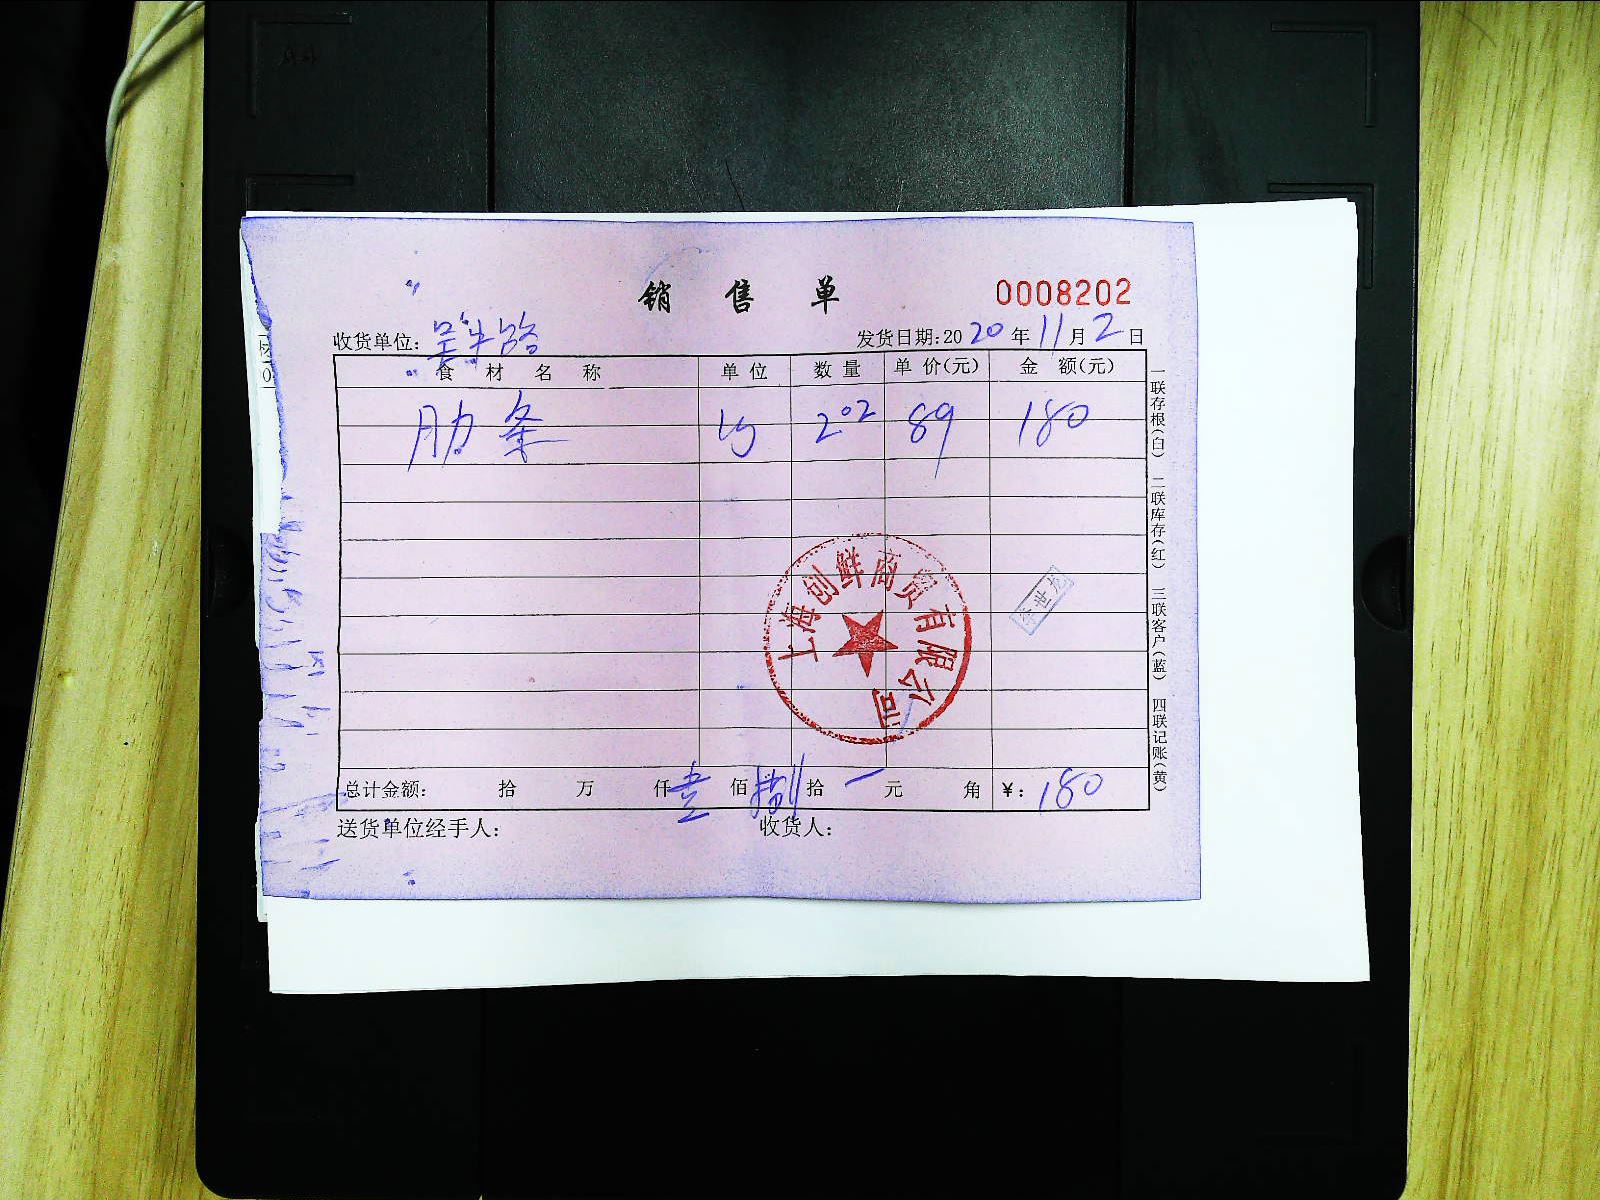 销售单
0008202
收货单位: 吴中路
发货日期:2020年11月2日
食材名称 单位 数量 单价(元) 金额(元)
肋条 斤 2.02 89 180
上海创鲜商贸有限公司
李世龙
总计金额: 拾 万 仟 壹 佰 捌 拾 一 元 角 ¥: 180
送货单位经手人: 收货人:
一联存根(白) 二联库存(红) 三联客户(蓝) 四联记账(黄)